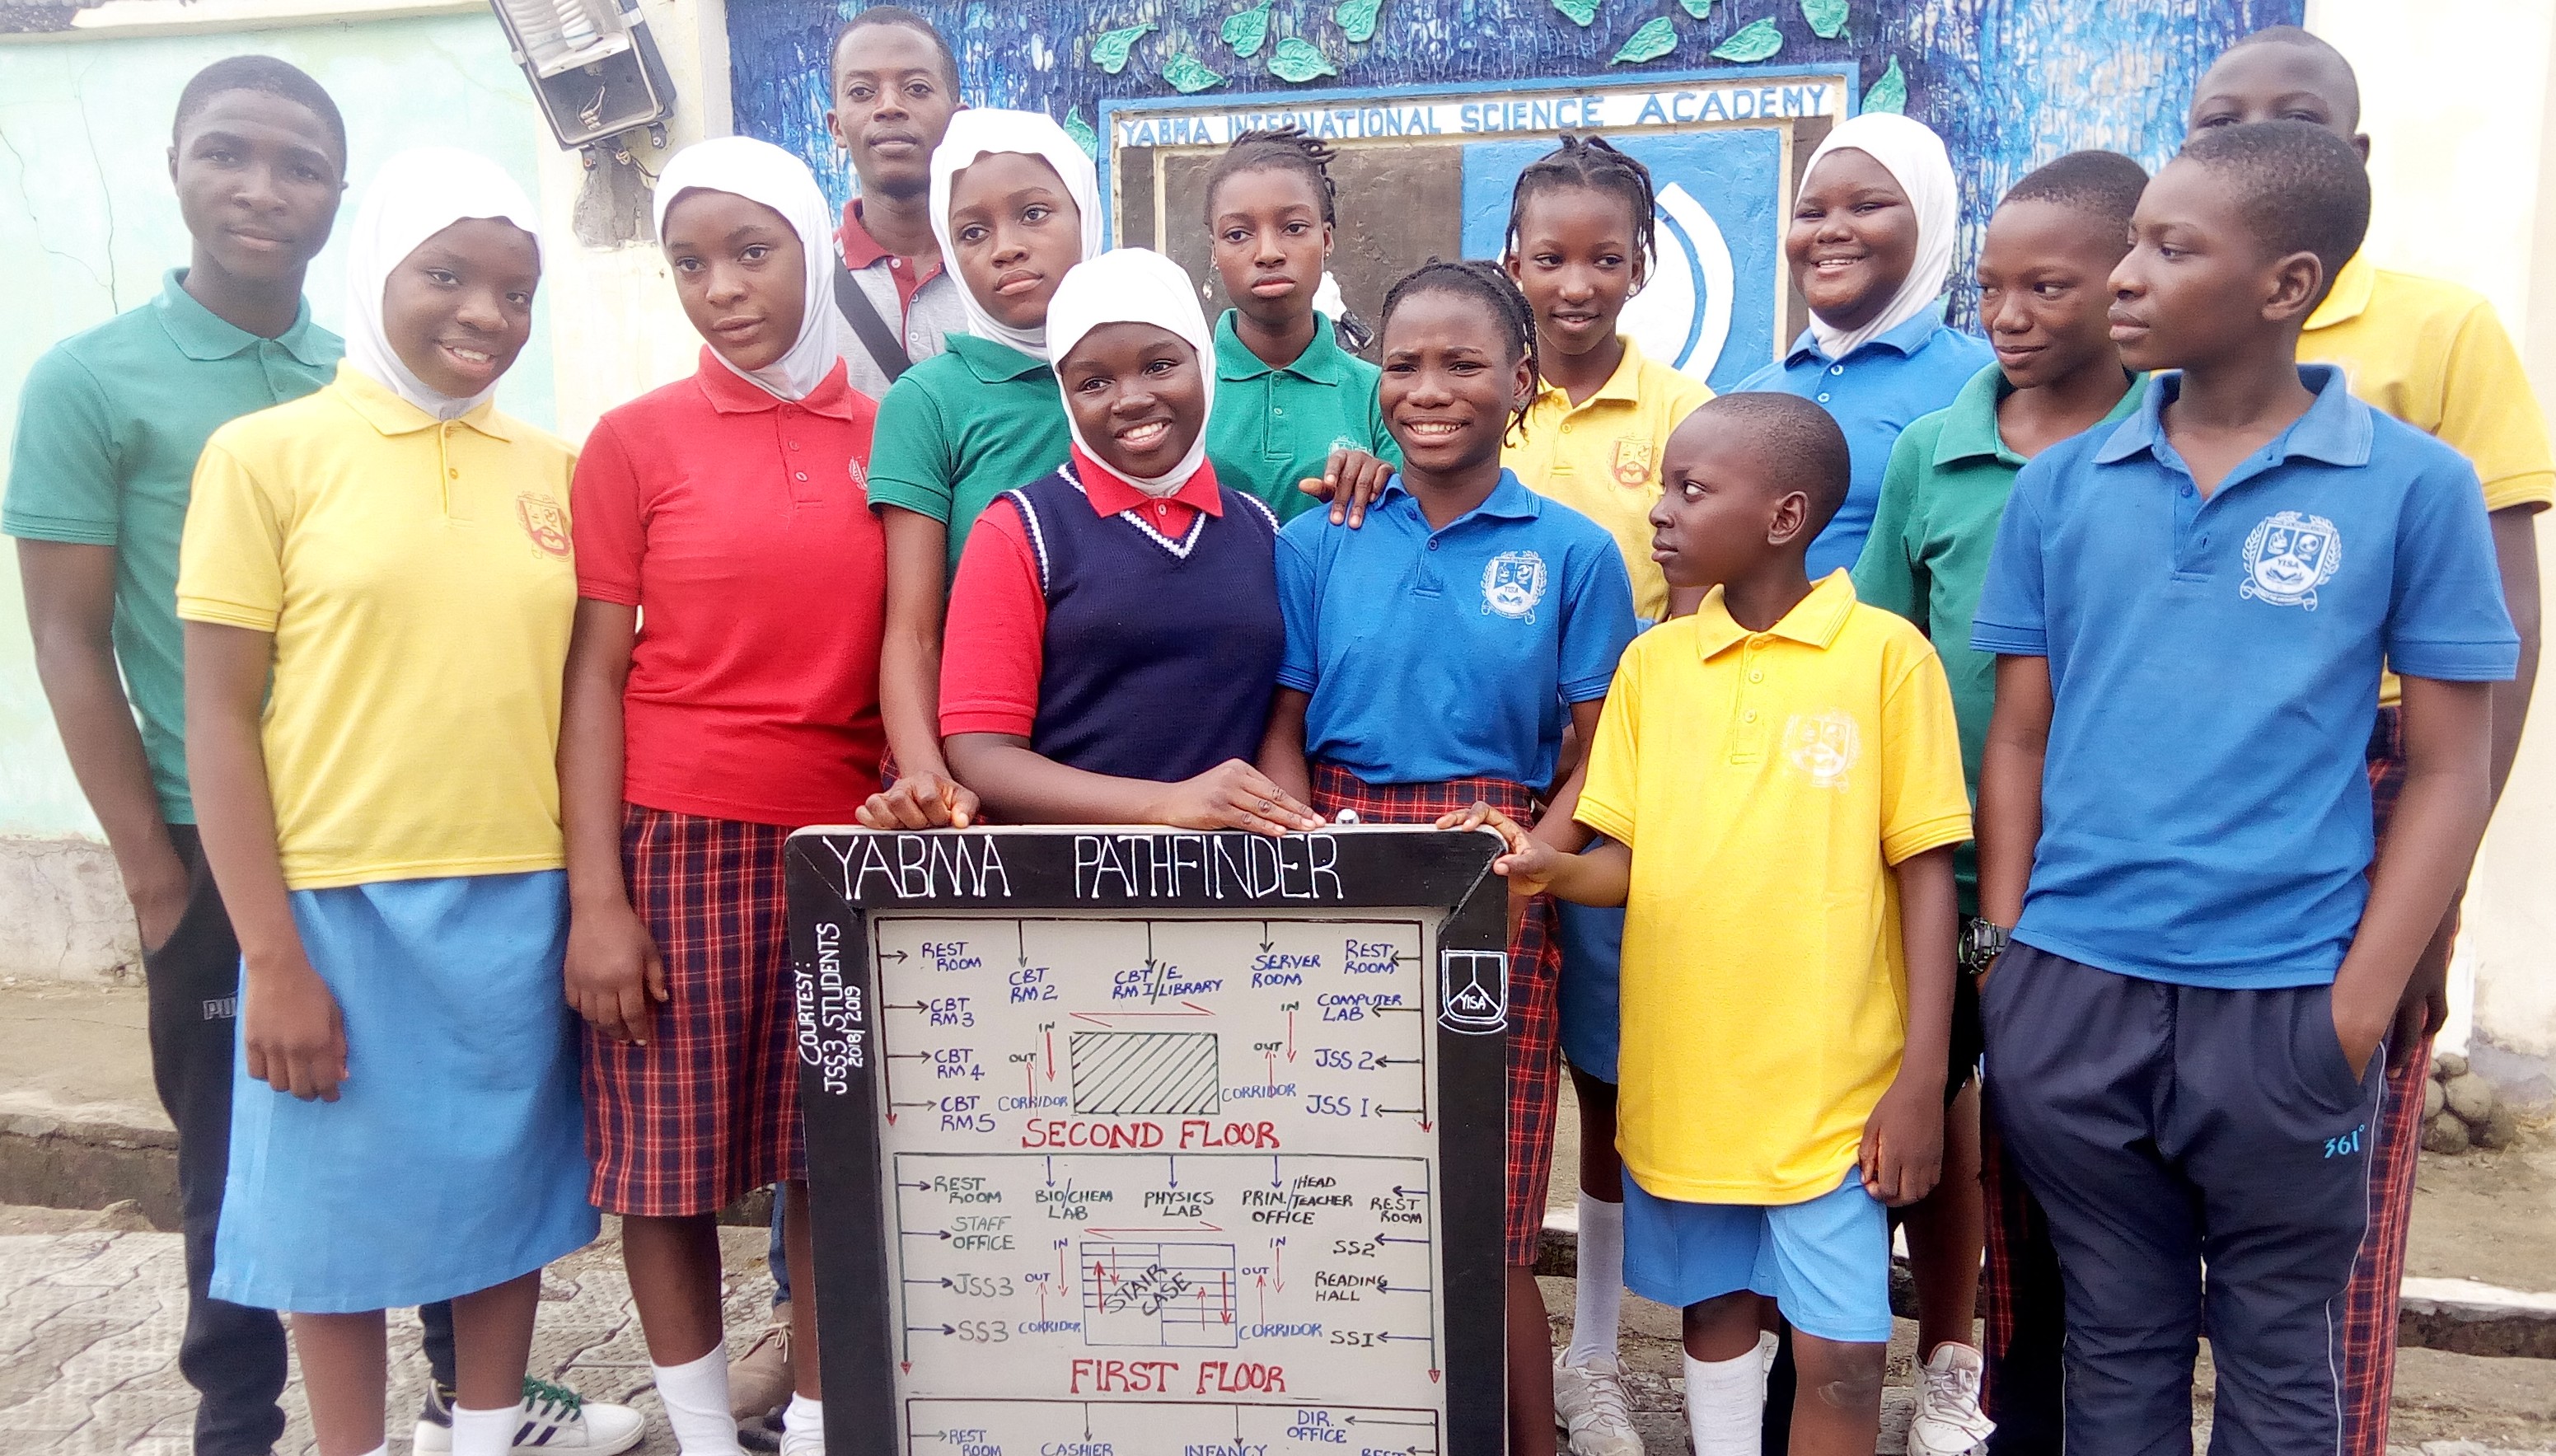 YABMA INTERNATIONAL SCIENCE ACADEMY
YISA
YISA
361°
YABMA PATHFINDER
COURTESY:
JSS3 STUDENTS
2018/2019
YISA
REST
ROOM
CBT
RM 2
CBT
RM I/E
LIBRARY
SERVER
ROOM
REST
ROOM
CBT
RM 3
IN
IN
COMPUTER
LAB
OUT
OUT
CBT
RM 4
JSS 2
CBT
RM 5
CORRIDOR
CORRIDOR
JSS I
SECOND FLOOR
REST
ROOM
BIO/CHEM
LAB
PHYSICS
LAB
PRIN./HEAD
TEACHER
OFFICE
REST
ROOM
STAFF
OFFICE
IN
IN
SS2
OUT
OUT
JSS3
STAIR
CASE
READING
HALL
SS3
CORRIDOR
CORRIDOR
SSI
FIRST FLOOR
REST
ROOM
CASHIER
INFANCY
DIR.
OFFICE
REST